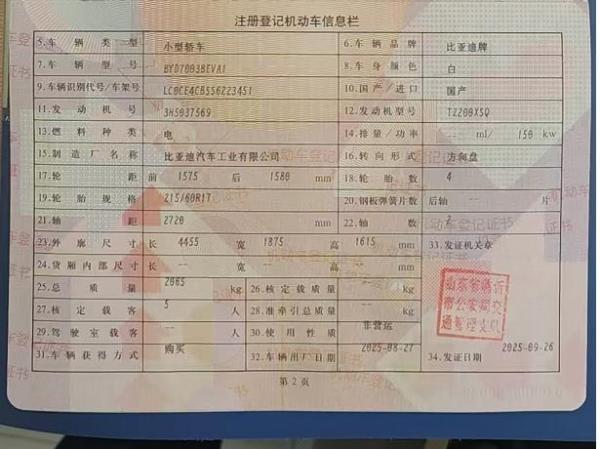 注册登记机动车信息栏
5.车辆类型 小型轿车 6.车辆品牌 比亚迪牌
7.车辆型号 BYD7003BEVA1 8.车身颜色 白
9.车辆识别代号/车架号 LC0CE4CB5S6223451 10.国产/进口 国产
11.发动机号 3H5037569 12.发动机型号 TZ200XSQ
13.燃料种类 电 14.排量/功率 -- ml/ 150 kw
15.制造厂名称 比亚迪汽车工业有限公司 16.转向形式 方向盘
17.轮距 前 1575 后 1580 mm 18.轮胎数 4
19.轮胎规格 215/60R17 20.钢板弹簧片数 后轴 -- 片
21.轴距 2720 mm 22.轴数 2
23.外廓尺寸 长 4455 宽 1875 高 1615 mm 33.发证机关章
24.货厢内部尺寸 长 -- 宽 -- 高 -- mm
25.总质量 2065 kg 26.核定载质量 -- kg
27.核定载客 5 人 28.准牵引总质量 -- kg
29.驾驶室载客 -- 人 30.使用性质 非营运
31.车辆获得方式 购买 32.车辆出厂日期 2025-08-27 34.发证日期 2025-09-26
山东省临沂
市公安局交
通警察支队
第2页